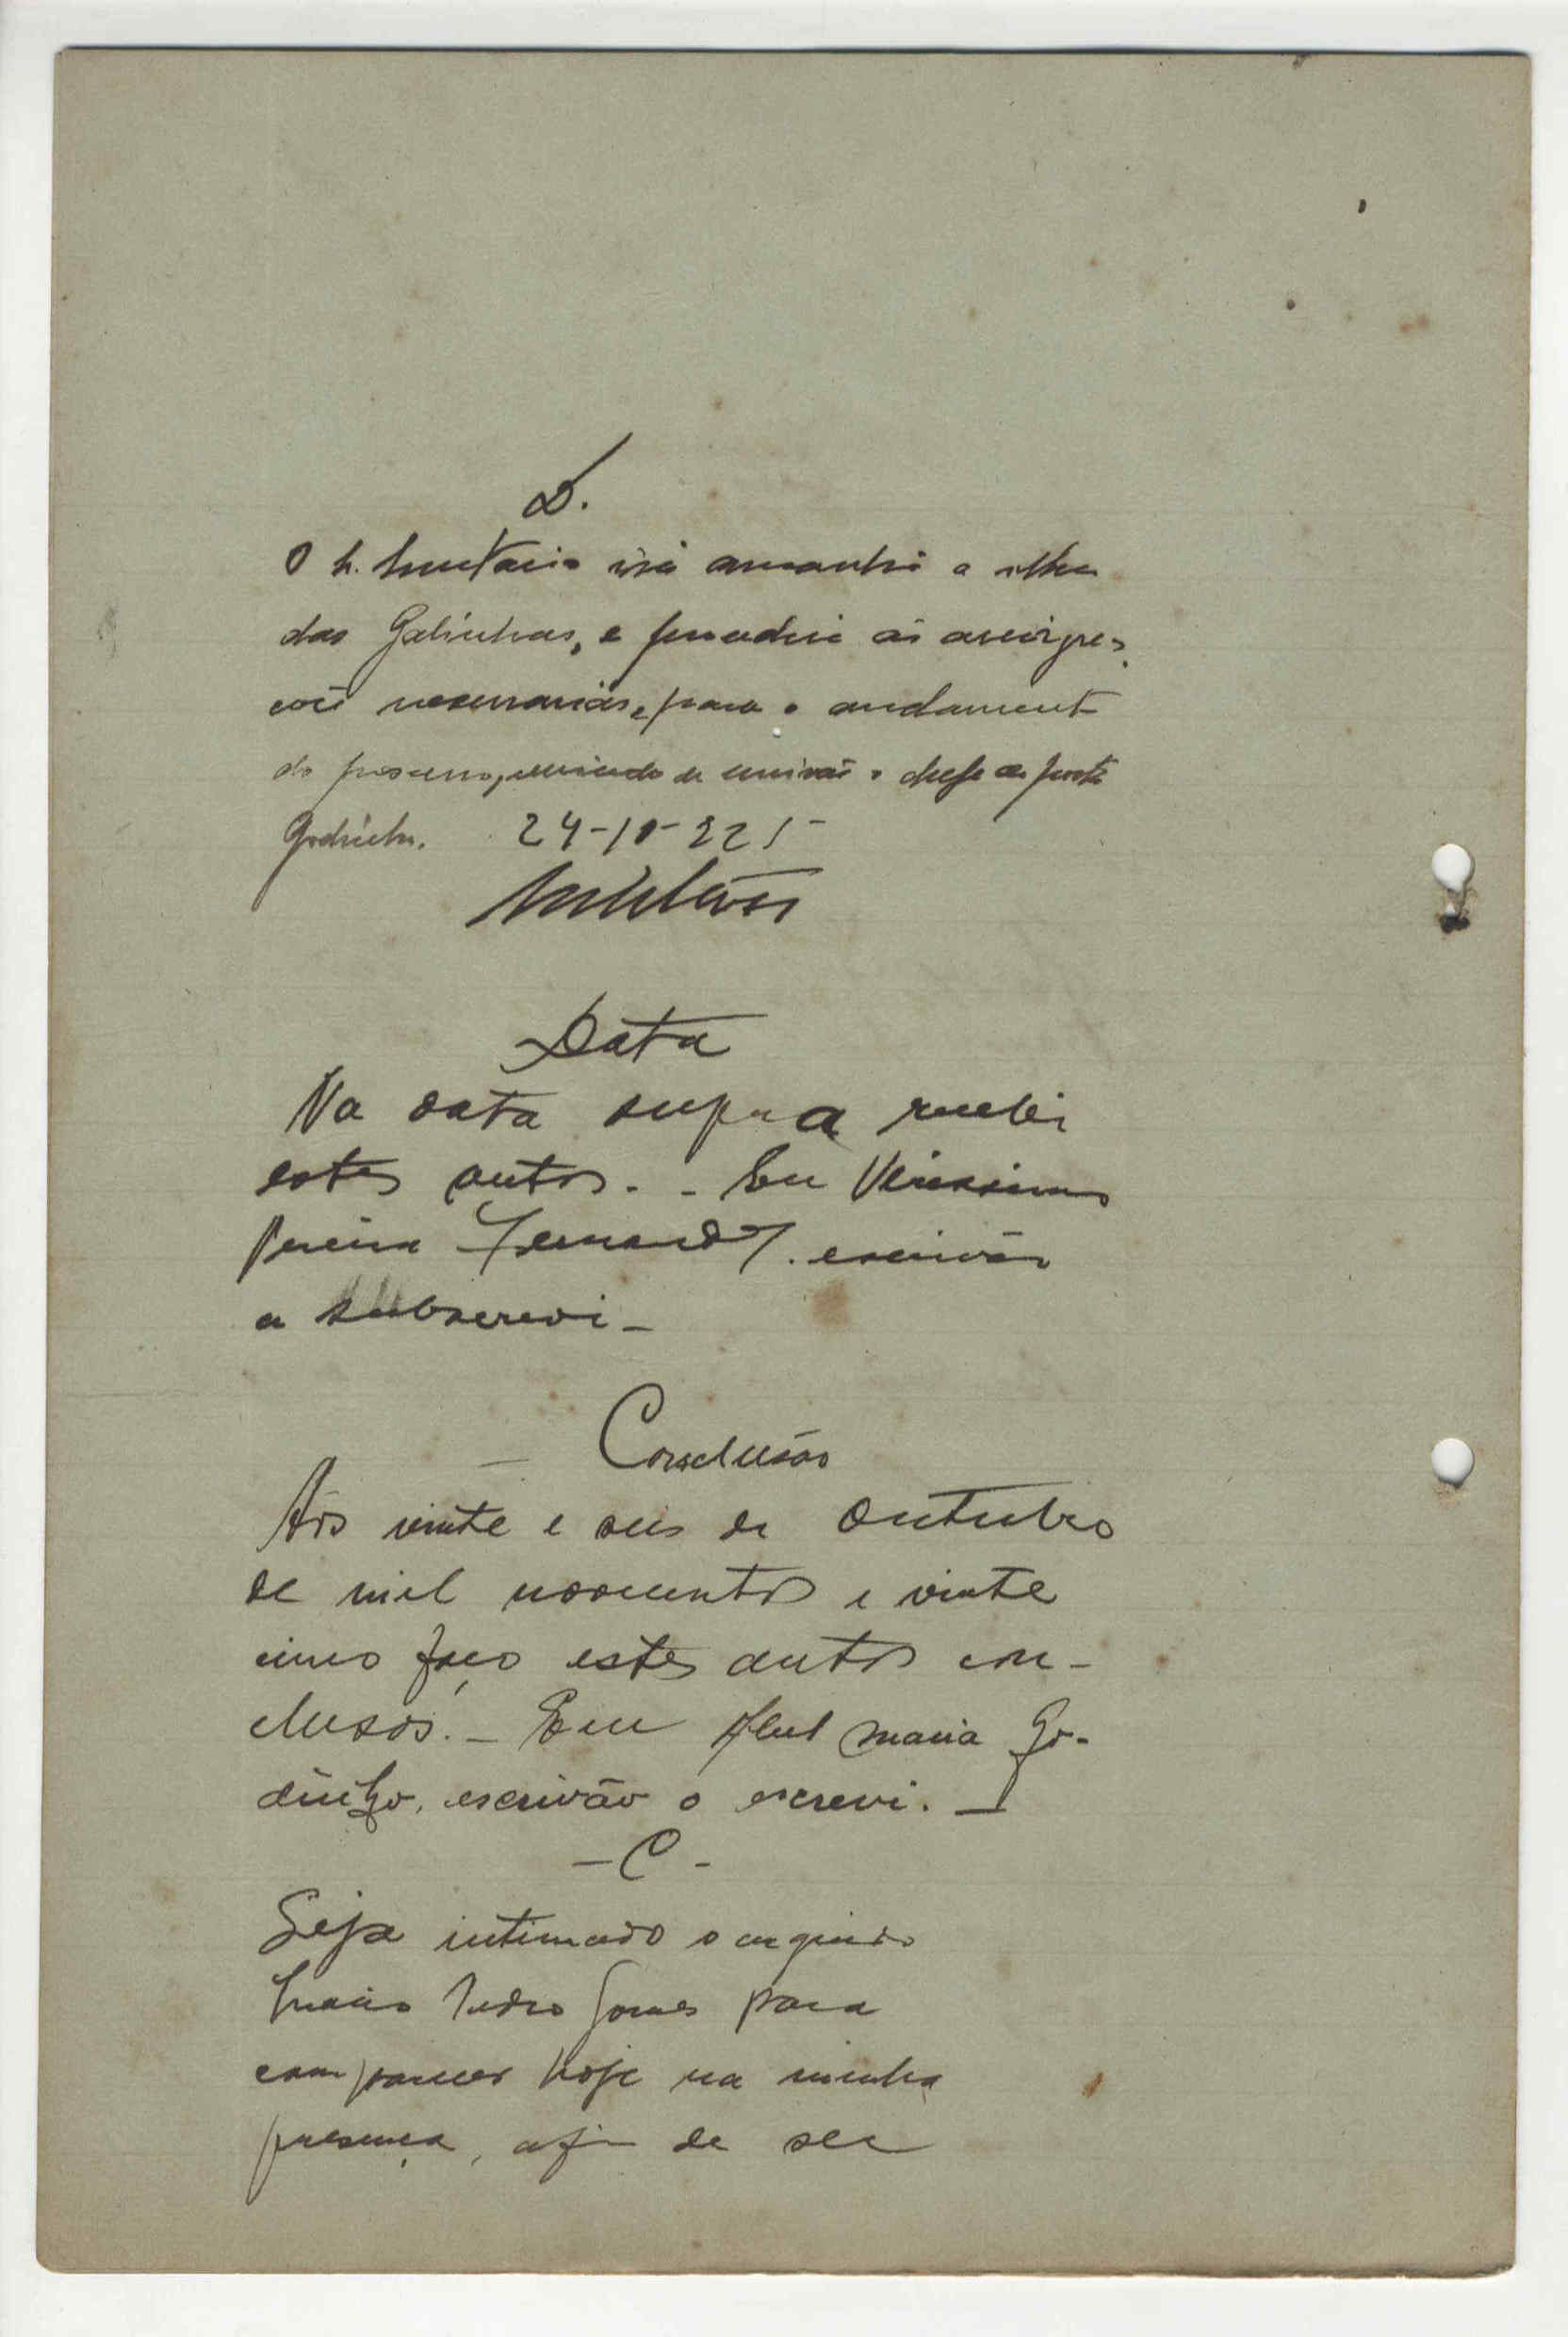 D.
O Sr. Secretario irá amanhã a ilha
das Galinhas, e procederá ás averigua-
ções necessarias, para o andamento
do processo, servindo de escrivão o chefe de posto
Godinho. 24-10-925
Data
Na data supra recebi
estes autos. - Eu Verissimo
Pereira Fernandes. escrivão
a subscrevi -
- Conclusão
Aos vinte e seis de Outubro
de mil novecentos e vinte
cinco faço estes autos con-
clusos. - Eu Abel Maria Go-
dinho, escrivão o escrevi. -
- C -
Seja intimado o arguido
Inacio Pedro Gomes para
comparecer hoje na minha
presença, afim de ser